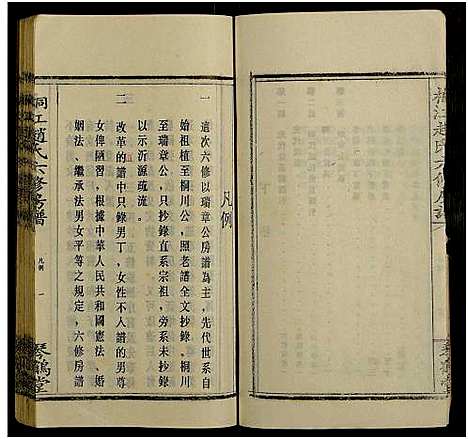 凡例
一
這次六修以瑞章公房譜為主，先代世系自
始祖植至桐川公，照老譜全文抄錄，桐川
至瑞章公，只抄錄直系宗祖，旁系未抄錄，
以示沂源疏流。
二
改革的譜中只錄男丁，女性不入譜的男尊
女俾陋習，根據中華人民共和國憲法、婚
姻法、繼承法男女平等之規定，六修房譜
江趙氏六修房譜
凡例
一
琴鶴堂
江趙氏六修房譜